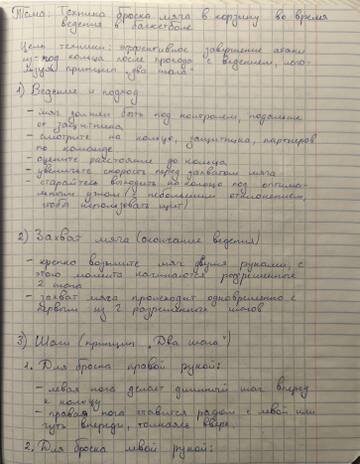 Тема: Техника броска мяча в корзину во время
ведения в баскетболе
Цель техники: эффективное завершение атаки
из-под кольца после прохода с ведением, исполь-
зуя принцип "два шага"
1) Ведение и подход
- мяч должен быть под контролем, подальше
от защитника
- смотрите на кольцо, защитника, партнеров
по команде
- оцените расстояние до кольца
- увеличьте скорость перед захватом мяча
- старайтесь выходить на кольцо под оптима-
льным углом (с небольшим отклонением,
чтобы использовать щит)
2) Захват мяча (окончание ведения)
- крепко возьмите мяч двумя руками, с
этого момента начинаются разрешенные
2 шага
- захват мяча происходит одновременно с
первым из 2 разрешенных шагов
3) Шаги (принцип "Два шага")
1. Для броска правой рукой:
- левая нога делает длинный шаг вперед
к кольцу
- правая нога ставится рядом с левой или
чуть впереди, толкаясь вверх
2. Для броска левой рукой: